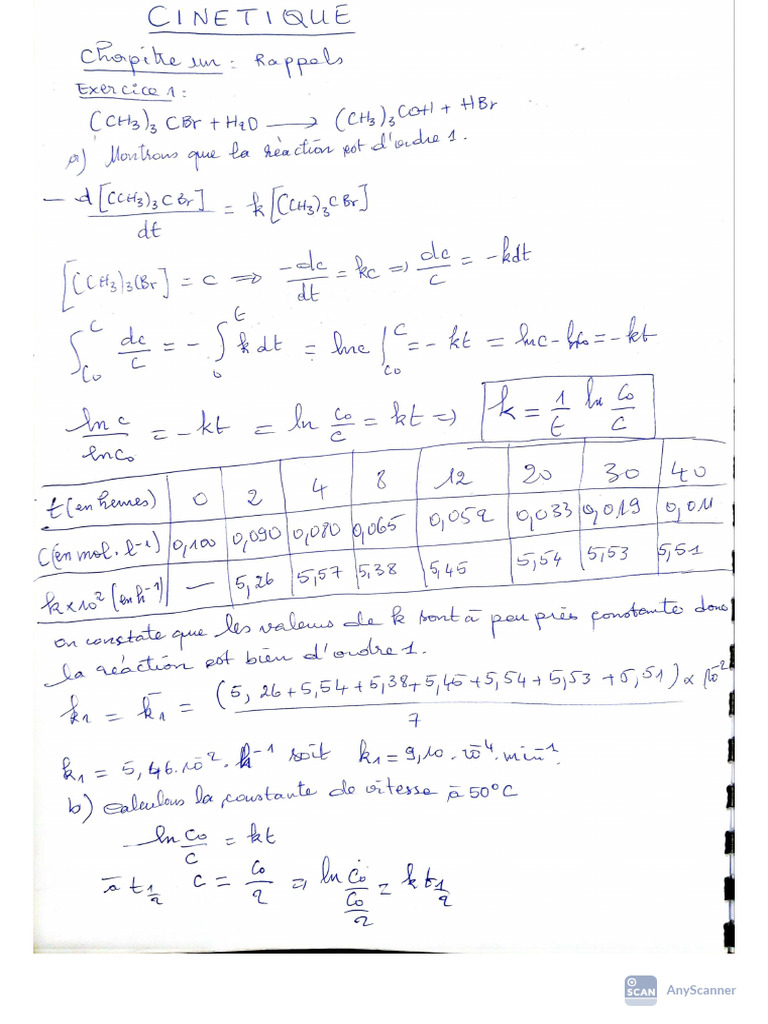 CINETIQUE
Chapitre un : Rappels
Exercice 1 :
(CH3)3 CBr + H2O → (CH3)3 COH + HBr
a) Montrons que la réaction est d'ordre 1.
- d[(CH3)3 CBr] / dt = k[(CH3)3 CBr]
[(CH3)3 CBr] = c ⇒ -dc/dt = kc ⇒ dc/c = -kdt
∫_{C0}^{C} dc/c = - ∫_0^t k dt = lnc |_{C0}^{C} = - kt = lnc - lnc0 = - kt
ln c / ln c0 = - kt = ln C0/C = kt ⇒ k = 1/t ln C0/C
t (en heures) 0 2 4 8 12 20 30 40
C (en mol. l-1) 0,100 0,090 0,080 0,065 0,052 0,033 0,019 0,011
k×10² (en h-1) — 5,26 5,57 5,38 5,45 5,54 5,53 5,51
on constate que les valeurs de k sont à peu près constante donc
la réaction est bien d'ordre 1.
k1 = k̄1 = (5,26 + 5,54 + 5,38 + 5,45 + 5,54 + 5,53 + 5,51) × 10-2 / 7
k1 = 5,46.10-2. h-1 soit k1 = 9,10.10-4. min-1.
b) calculons la constante de vitesse à 50°C
ln C0/C = kt
à t1/2 C = C0/2 ⇒ ln C0/(C0/2) = k t1/2
SCAN AnyScanner